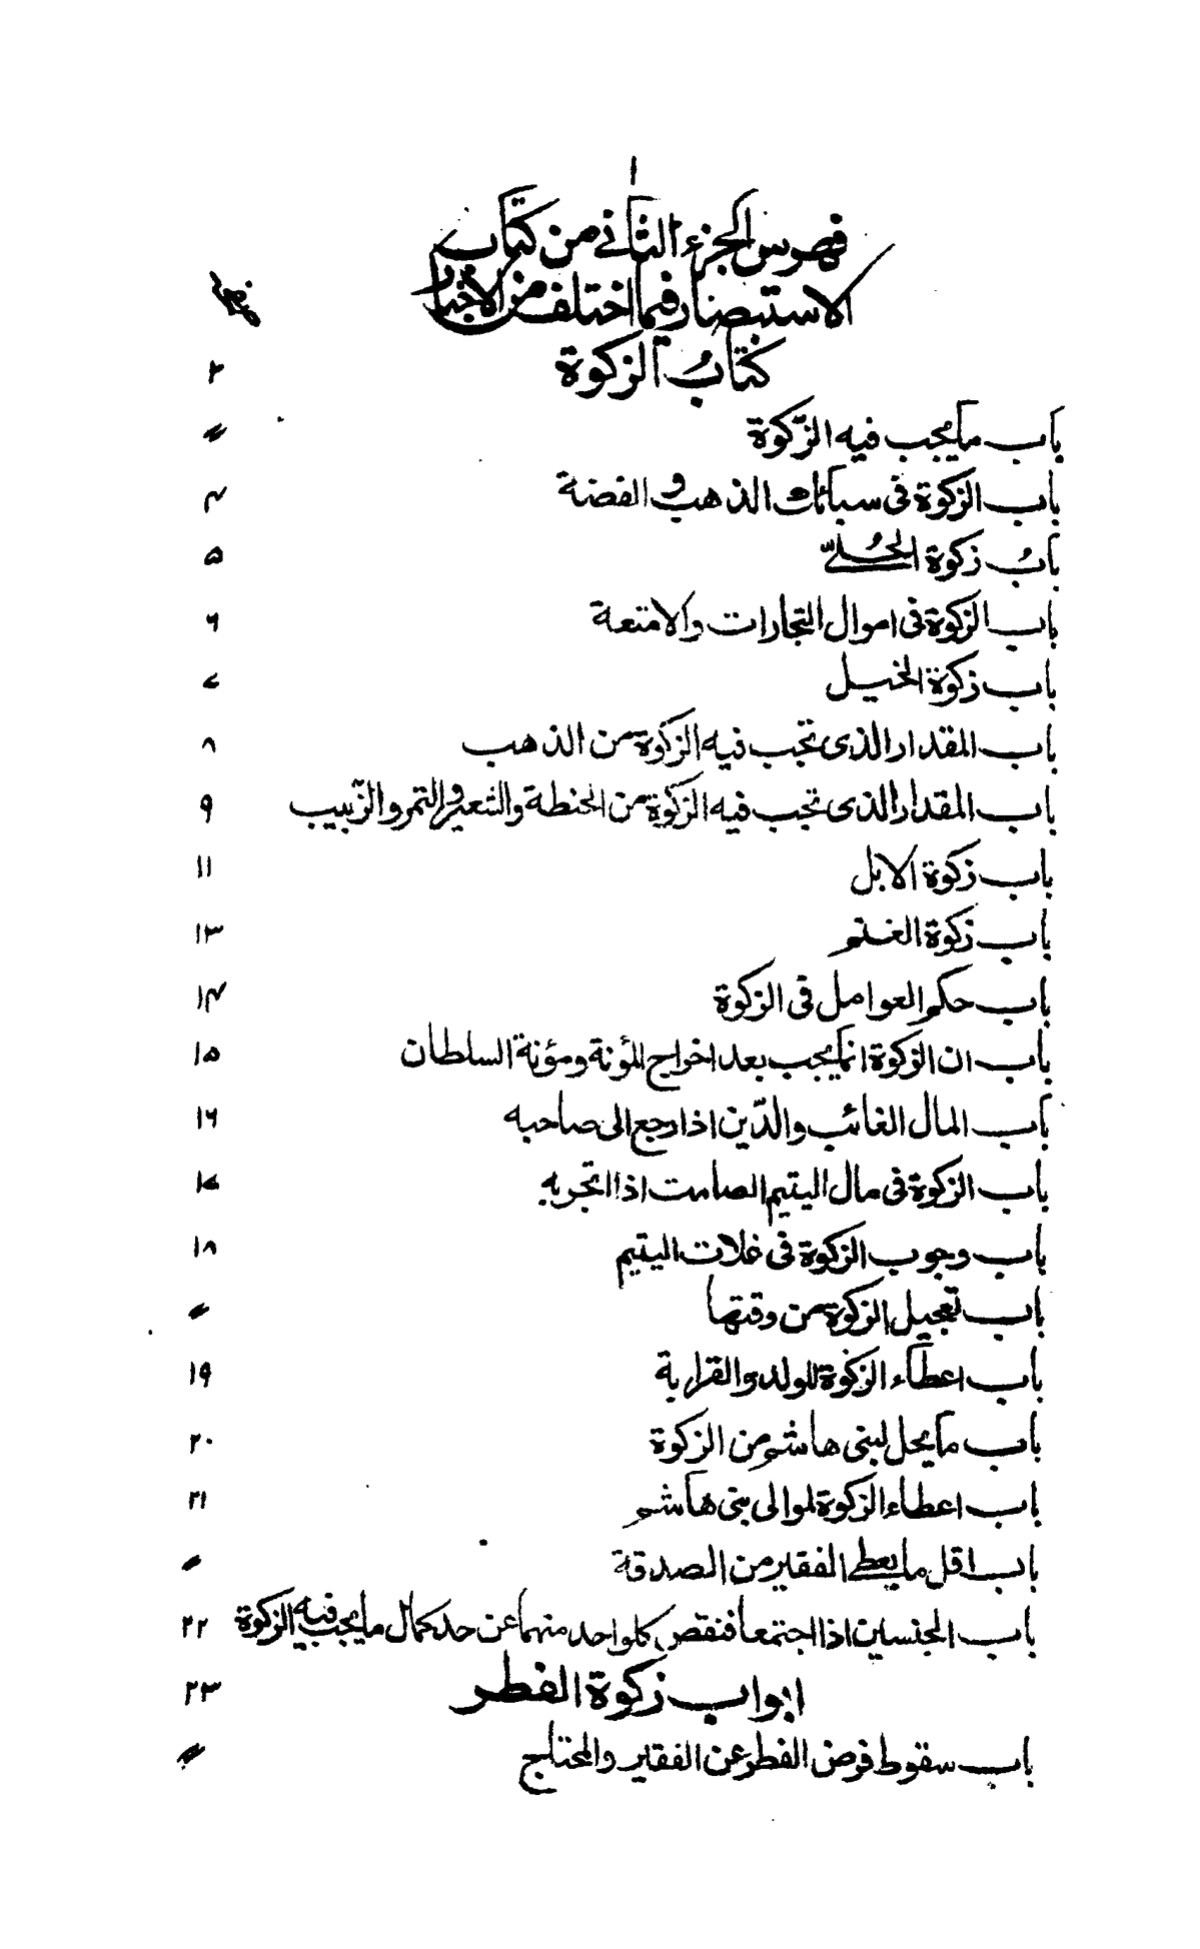 ١
فهرس الجزء الثاني من كتاب
الاستبصار فيما اختلف من الاخبار
كتابُ الزكوة ٢
باب ما يجب فيه الزّكوة 〃
باب الزكوة فى سبائك الذهب و الفضة ۴
بابُ زكوة الحُليّ ۵
باب الزكوة فى اموال التجارات والامتعة ۶
باب زكوة الخيل ٧
باب المقدار الذى تجب فيه الزكوة من الذهب ٨
باب المقدار الذى تجب فيه الزكوة من الحنطة والشعير والتمر والزّبيب ٩
باب زكوة الابل ١١
باب زكوة الغنم ١٣
باب حكم العوامل فى الزكوة ١۴
باب ان الزكوة انما يجب بعد اخراج المؤنة ومؤنة السلطان ١۵
باب المال الغائب والدّين اذا رجع الى صاحبه ١۶
باب الزكوة فى مال اليتيم الصامت اذا اتجر به ١٧
باب وجوب الزكوة فى غلات اليتيم ١٨
باب تعجيل الزكوة من وقتها 〃
باب اعطاء الزكوة للولد والقرابة ١٩
باب ما يحل لبنى هاشم من الزكوة ٢٠
باب اعطاء الزكوة لموالى بنى هاشم ٢١
باب اقل ما يعطى الفقير من الصدقة 〃
باب الجنسين اذا اجتمعا فنقص كلواحد منهما عن حد كمال ما يجب فيه الزكوة ٢٢
ابواب زكوة الفطر ٢٣
باب سقوط فرض الفطر عن الفقير والمحتاج 〃